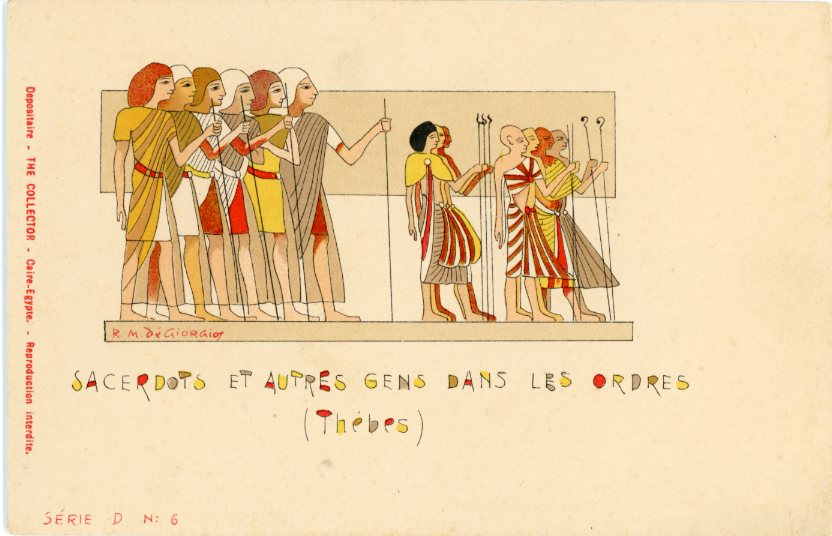 Depositaire - THE COLLECTOR - Caire-Egypte. - Reproduction interdite.
R. M. DéGIORGIO
SACERDOTS ET AUTRES GENS DANS LES ORDRES
(Thébes)
SÉRIE D N: 6